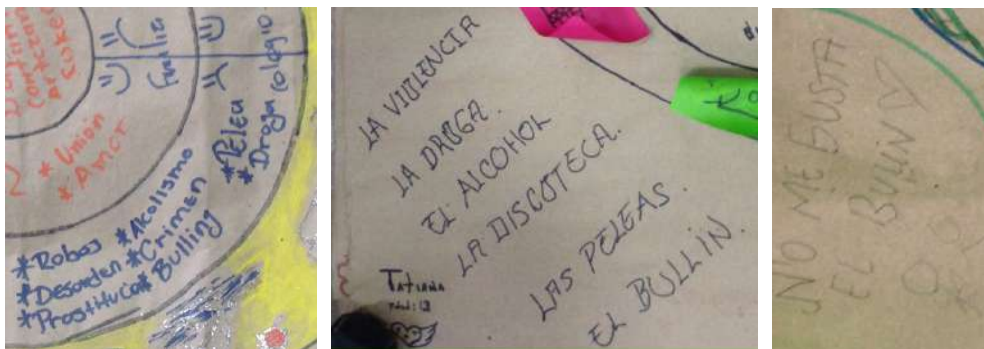 Confianza
* Union
* Amor
familia
* Pelea
* Droga
colegio
* Robos
* Alcolismo
* Desorden
* Crimen
* Bulling
LA VIOLENCIA
LA DROGA.
EL ALCOHOL
LA DISCOTECA.
LAS PELEAS.
EL BULLÍN.
TATIANA
NO ME GUSTA
EL BULIN